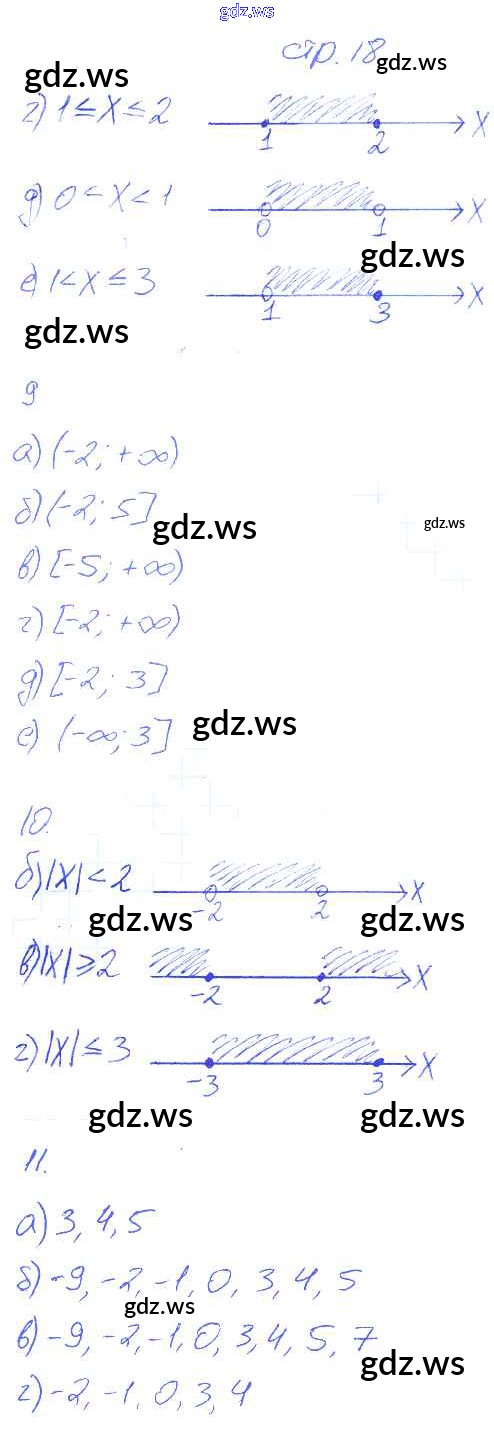 gdz.ws
стр. 18 gdz.ws
gdz.ws
г) 1 ≤ X ≤ 2 1 2 X
д) 0 < X < 1 0 1 X
gdz.ws
е) 1 < X ≤ 3 1 3 X
gdz.ws
9
а) (-2; +∞)
б) (-2; 5]
gdz.ws gdz.ws
в) [-5; +∞)
г) [-2; +∞)
д) [-2; 3]
gdz.ws
е) (-∞; 3]
10.
б) |X| < 2 -2 2 X
gdz.ws gdz.ws
в) |X| ≥ 2 -2 2 X
г) |X| ≤ 3 -3 3 X
gdz.ws gdz.ws
11.
а) 3, 4, 5
б) -9, -2, -1, 0, 3, 4, 5
gdz.ws
в) -9, -2, -1, 0, 3, 4, 5, 7
gdz.ws
г) -2, -1, 0, 3, 4